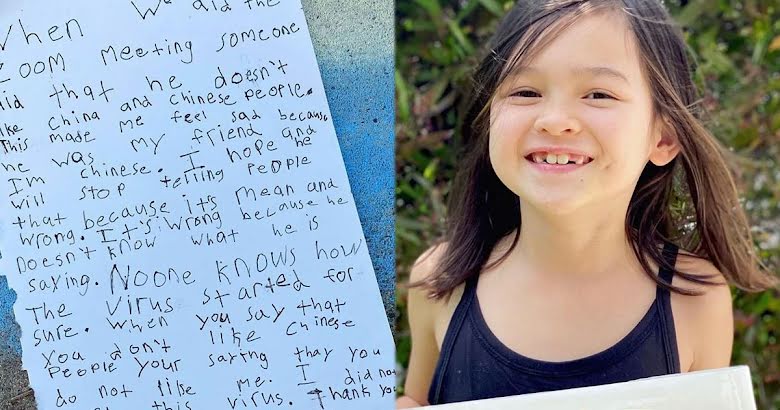 When we did the
Zoom meeting someone
did that he doesn't
like China and Chinese People.
This made me feel sad because
he was my friend and
I'm chinese. I hope he
will stop telling People
that because it's mean and
wrong. It's wrong because he
Doesn't know what he is
saying. Noone knows how
The virus started for
sure. When you say that
you don't like Chinese
People your saying thay you
do not like me. I did not
this virus. Thank you